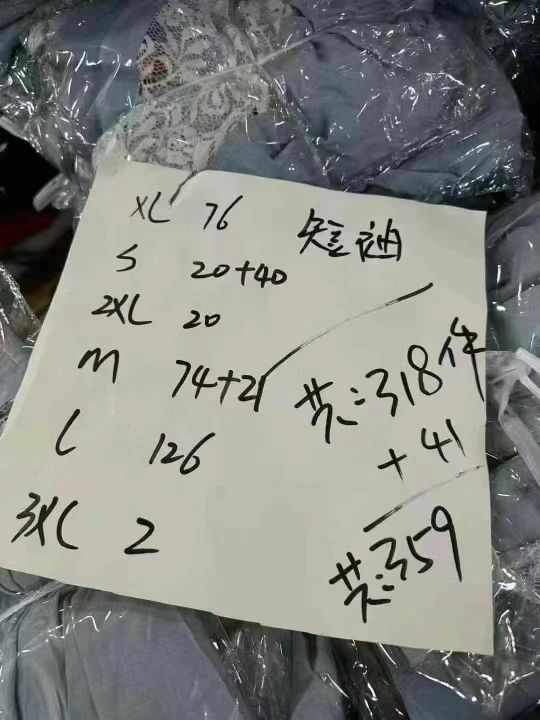 XL 76
短袖
S 20+40
2XL 20
M 74+21
L 126
3XL 2
共:318件
+41
共:359